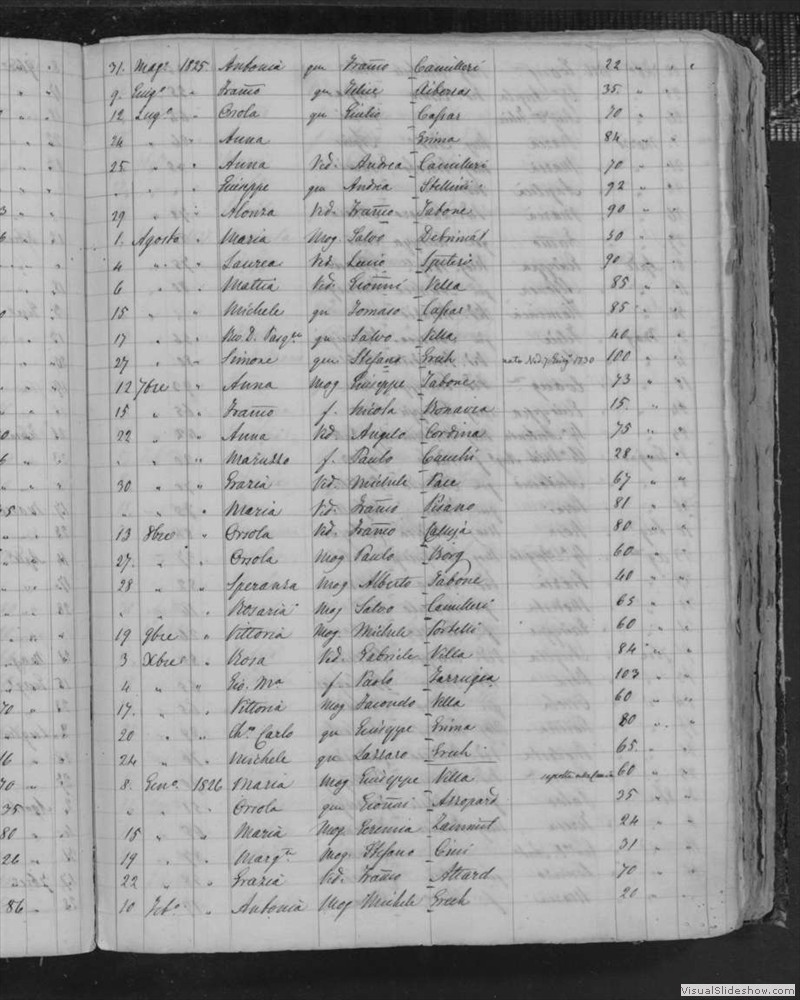 31. Mag.º 1825 Antonia qm Franco Camilleri 22 " "
9. Giug.º " Franco qm Felice 35. " "
12 Lug.º " Orsola qm Giulio Cassar 70 " "
24 " " Anna Grima 84 " "
25 " " Anna Vid. Andrea Camilleri 70 " "
" " " Giuseppe qm Andrea Stellini 92 " "
29 " " Alonza Vid. Franco Tabone 90 " "
1. Agosto " Maria Mog Salvo Debrincat 30 " "
4 " " Laurea Vid. Lucio Spiteri 90 " "
6 " " Mattia Vid. Gionni Vella 85 " "
15 " " Michele qm Tomaso Cassar 85 " "
17 " " Rev. D. Pasqle qm Salvo Vella 40 " "
27 " " Simone qm Stefano Grech 100 " "
12 7bre " Anna Mog Giuseppe Tabone 73 " "
15 " " Franco f. Nicola Bonavia 15. " "
22 " " Anna Vid. Angelo Cordina 75 " "
" " " f. Paulo 28 " "
30 " " Grazia Vid. Michele Pace 67 " "
" " " Maria Vid. Franco Pisano 81 " "
13 8bre " Orsola Vid. Franco Calleja 80 " "
27. " " Orsola Mog Paulo Borg 60 " "
28 " " Speranza Mog Alberto Tabone 40 " "
" " " Rosaria Mog Salvo Camilleri 65 " "
19 9bre " Vittoria Mog. Michele Portelli 60 " "
3 Xbre " Rosa Vid. Gabriele Vella 84 " "
4 " " Gio. Ma f. Paolo Farrugia 103 " "
17. " " Vittoria Mog Facondo Vella 60 " "
20 " " Carlo qm Giuseppe Grima 80 " "
24 " " Michele qm Lazzaro Grech 65 " "
8. Gen.º 1826 Maria Mog Giuseppe Vella 60 " "
" " " Orsola qm Gionni Azzopard 35 " "
15 " " Maria Mog. Geremia Zammit 24 " "
19 " " Marg.ta Mog. Stefano Cini 31 " "
22 " " Grazia Vid. Franco Attard 70 " "
10 Feb.º " Antonia Mog Michele Grech 20 " "
VisualSlideshow.com